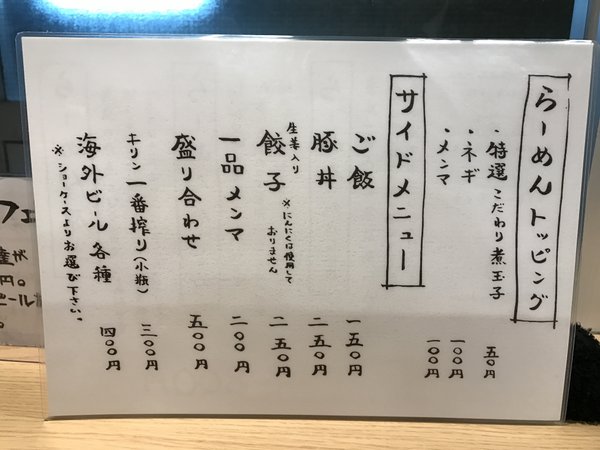 らーめんトッピング
・特選 こだわり煮玉子 五〇円
・ネギ 一〇〇円
・メンマ 一〇〇円
サイドメニュー
ご飯 一五〇円
豚丼 二五〇円
生姜入り
餃子 二五〇円
※にんにくは使用して
おりません
一品 メンマ 二〇〇円
盛り合わせ 五〇〇円
キリン 一番搾り(小瓶) 三〇〇円
海外ビール 各種 四〇〇円
※ショーケースよりお選び下さい。
フェ
円。
ビール